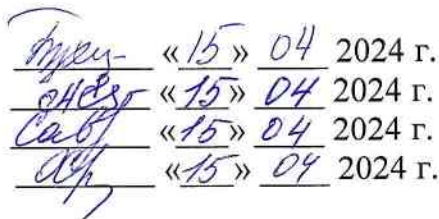 «15» 04 2024 г.
«15» 04 2024 г.
«15» 04 2024 г.
«15» 04 2024 г.